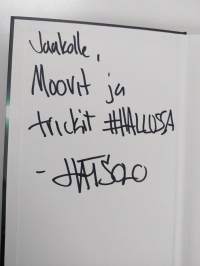 Jaakolle,
Moovit ja
trickit #HALLUSSA